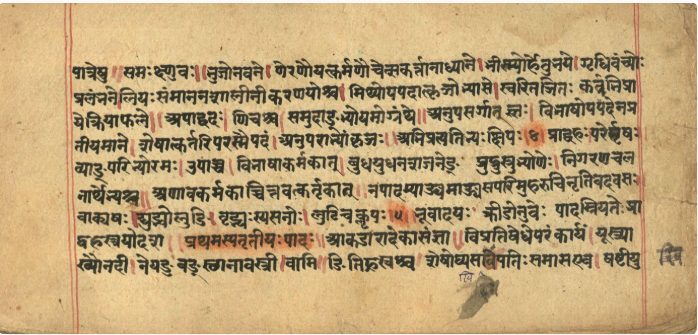 पात्रेषु । समः क्ष्णुवः । भुजोनवने । णेरणौयत्कर्मणौचेत्सकर्त्तानाध्याने । भीस्म्योर्हेतुभये । गृधिवंच्योः
प्रलंभनेलियः संमाननशालीनीकरणयोश्च । मिथ्योपपदात्कृञोभ्यासे । स्वरितञितः कर्त्रभिप्रा
येक्रियाफले । अपाद्वदः । णिचश्च । समुदाङ्भ्योयमोग्रंथे । अनुपसर्गात् ज्ञः । विभाषोपपदेनप्र
तीयमाने । शेषात्कर्तरिपरस्मैपदं । अनुपराभ्यांकृञः । अभिप्रत्यतिभ्यः क्षिपः ६ प्राद्वहः परेर्मृषः
व्याङ्परिभ्योरमः । उपाच्च । विभाषाकर्मकात् । बुधयुधनशजनेङ् प्रुद्रुस्रुभ्योणेः । निगरणचल
नार्थेभ्यश्च । अणावकर्मकाच्चित्तवत्कर्तृकात् । नपादम्याङ्यमाङ्यसपरिमुहरुचिनृतिवदवसः
वाक्यषः । द्युभ्द्योलुङि । वृद्भ्यः स्यसनोः । लुटिचकॢपः । ५ भूवादयः क्रीडोनुवेः पादम्रियतेः प्रा
द्वहस्त्रयोदश । प्रथमस्यतृतीयः पादः । आकडारादेकासंज्ञा । विप्रतिषेधेपरंकार्यं । यूस्त्र्या
ख्यौनदी । नेयङुवङ्स्थानावस्त्री । वामि । ङितिह्रस्वश्च शेषोघ्यसखिपतिः समासएव । षष्ठीयु